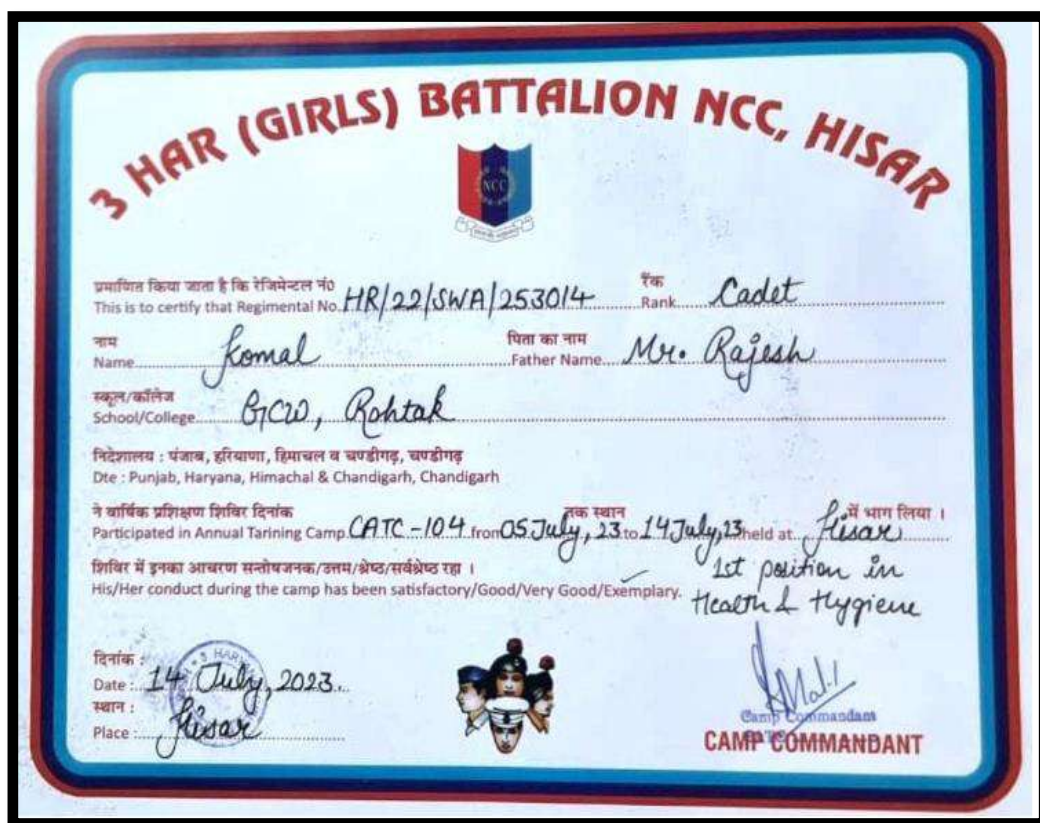 3 HAR (GIRLS) BATTALION NCC, HISAR
NCC
प्रमाणित किया जाता है कि रेजिमेन्टल नं० रैंक
This is to certify that Regimental No. HR/22/SWA/253014 Rank Cadet
नाम पिता का नाम
Name Komal Father Name Mr. Rajesh
स्कूल/कॉलेज
School/College GCW, Rohtak
निदेशालय : पंजाब, हरियाणा, हिमाचल व चण्डीगढ़, चण्डीगढ़
Dte : Punjab, Haryana, Himachal & Chandigarh, Chandigarh
ने वार्षिक प्रशिक्षण शिविर दिनांक तक स्थान में भाग लिया ।
Participated in Annual Tarining Camp CATC-104 from 05 July, 23 to 14 July, 23 held at Hisar
शिविर में इनका आचरण सन्तोषजनक/उत्तम/श्रेष्ठ/सर्वश्रेष्ठ रहा ।
His/Her conduct during the camp has been satisfactory/Good/Very Good/Exemplary.
1st position in
Health & Hygiene
दिनांक :
Date : 14 July, 2023.
स्थान :
Place : Hisar
3 HAR
Camp Commandant
CAMP COMMANDANT